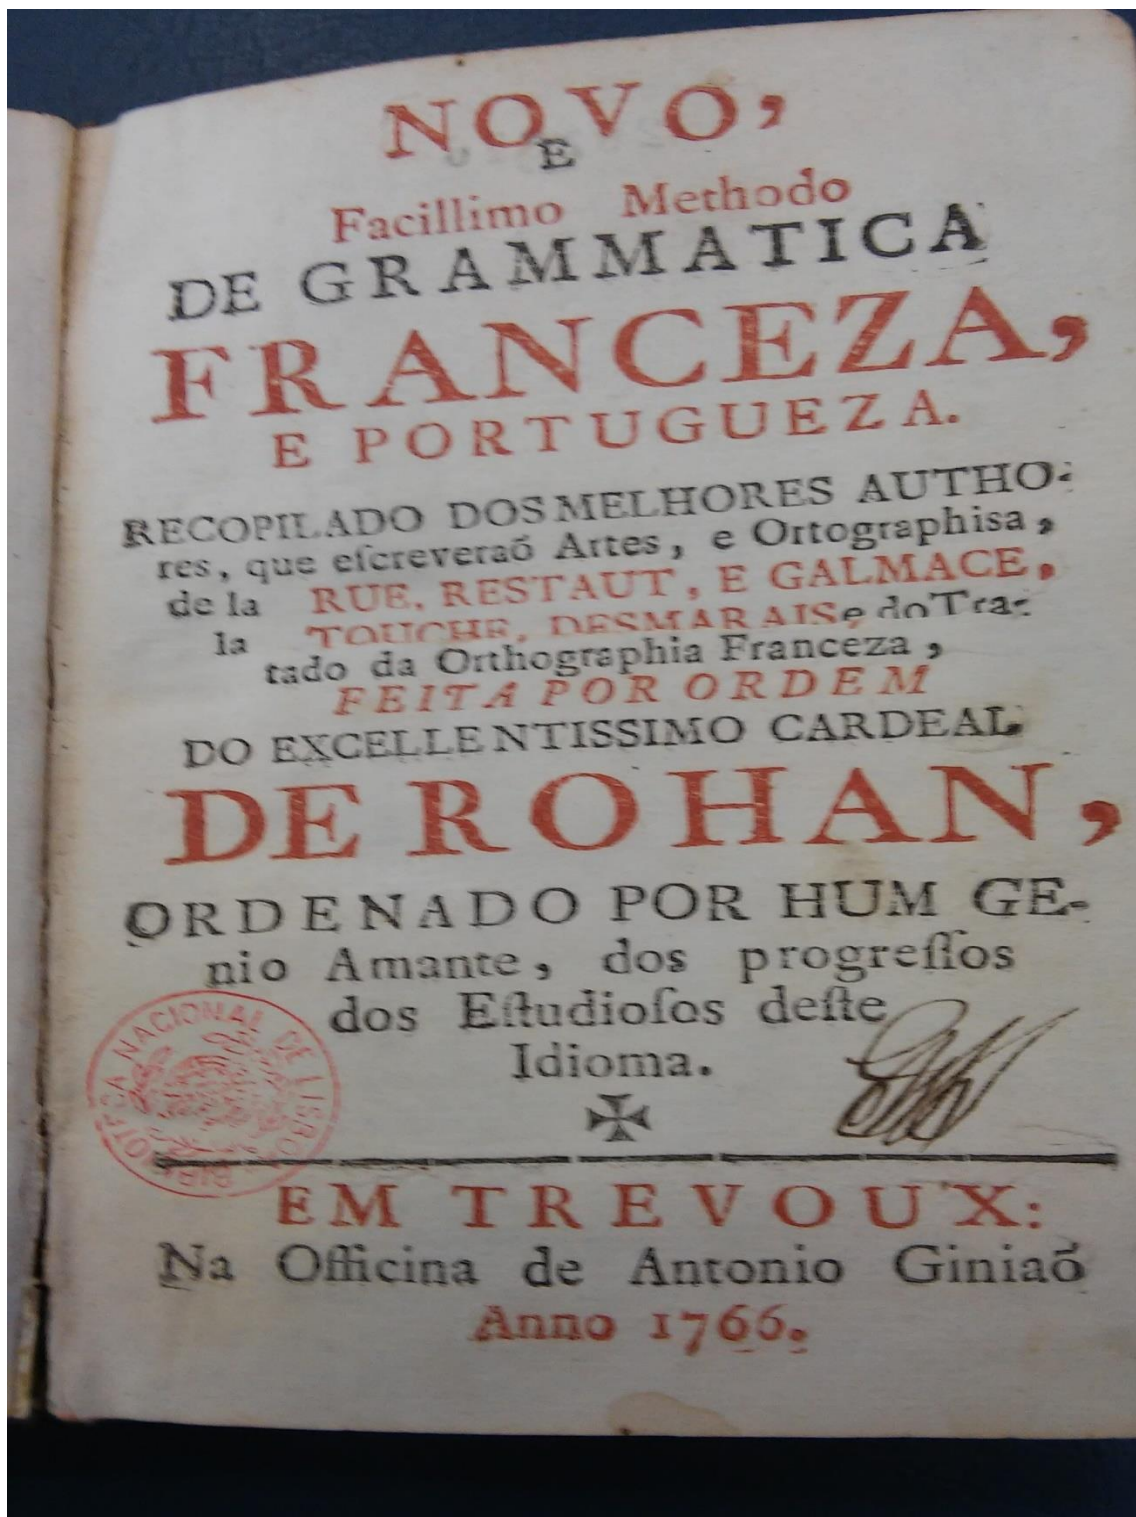 NOVO,
E
Facillimo Methodo
DE GRAMMATICA
FRANCEZA,
E PORTUGUEZA.
RECOPILADO DOS MELHORES AUTHO-
res, que eſcreveraõ Artes, e Ortographisa,
de la RUE, RESTAUT, E GALMACE,
la TOUCHE, DESMARAIS, e do Tra-
tado da Orthographia Franceza,
FEITA POR ORDEM
DO EXCELLENTISSIMO CARDEAL
DE ROHAN,
ORDENADO POR HUM GE-
nio Amante, dos progreſſos
dos Eſtudioſos deſte
Idioma.
BIBLIOTECA NACIONAL DE LISBOA
EM TREVOUX:
Na Officina de Antonio Giniaõ
Anno 1766.